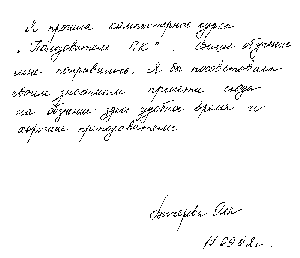 Я прошла компьютерные курсы
"Пользователь ПК". Своим обучение
мне понравилось. Я бы посоветовала
своим знакомым прийти сюда
на обучение здесь удобное время и
хорошие преподаватели.